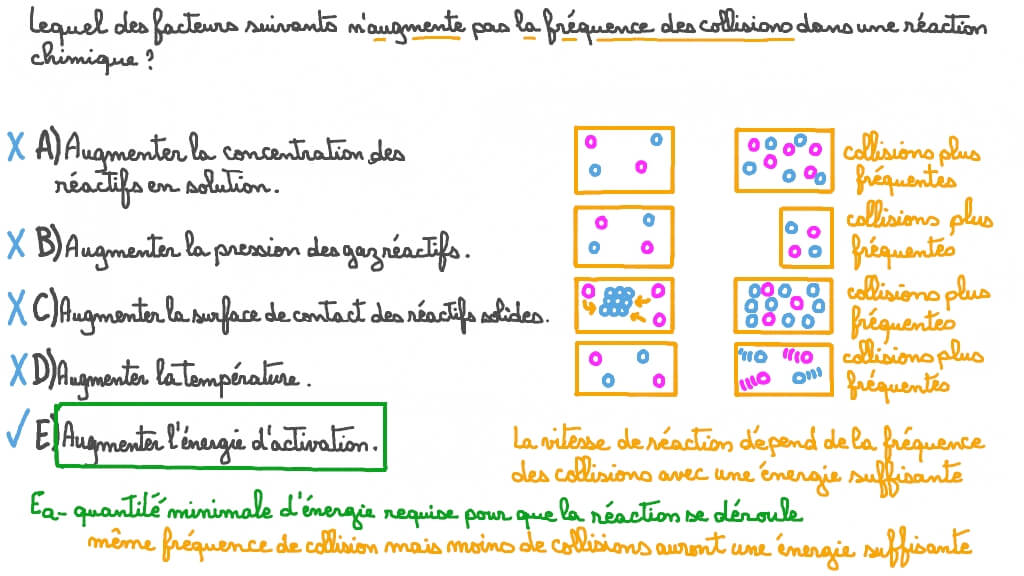 Lequel des facteurs suivants n'augmente pas la fréquence des collisions dans une réaction
chimique ?
X A) Augmenter la concentration des
réactifs en solution.
collisions plus
fréquentes
X B) Augmenter la pression des gaz réactifs.
collisions plus
fréquentes
X C) Augmenter la surface de contact des réactifs solides.
collisions plus
fréquentes
X D) Augmenter la température.
collisions plus
fréquentes
✓ E) Augmenter l'énergie d'activation.
La vitesse de réaction dépend de la fréquence
des collisions avec une énergie suffisante
Ea - quantité minimale d'énergie requise pour que la réaction se déroule
même fréquence de collision mais moins de collisions auront une énergie suffisante